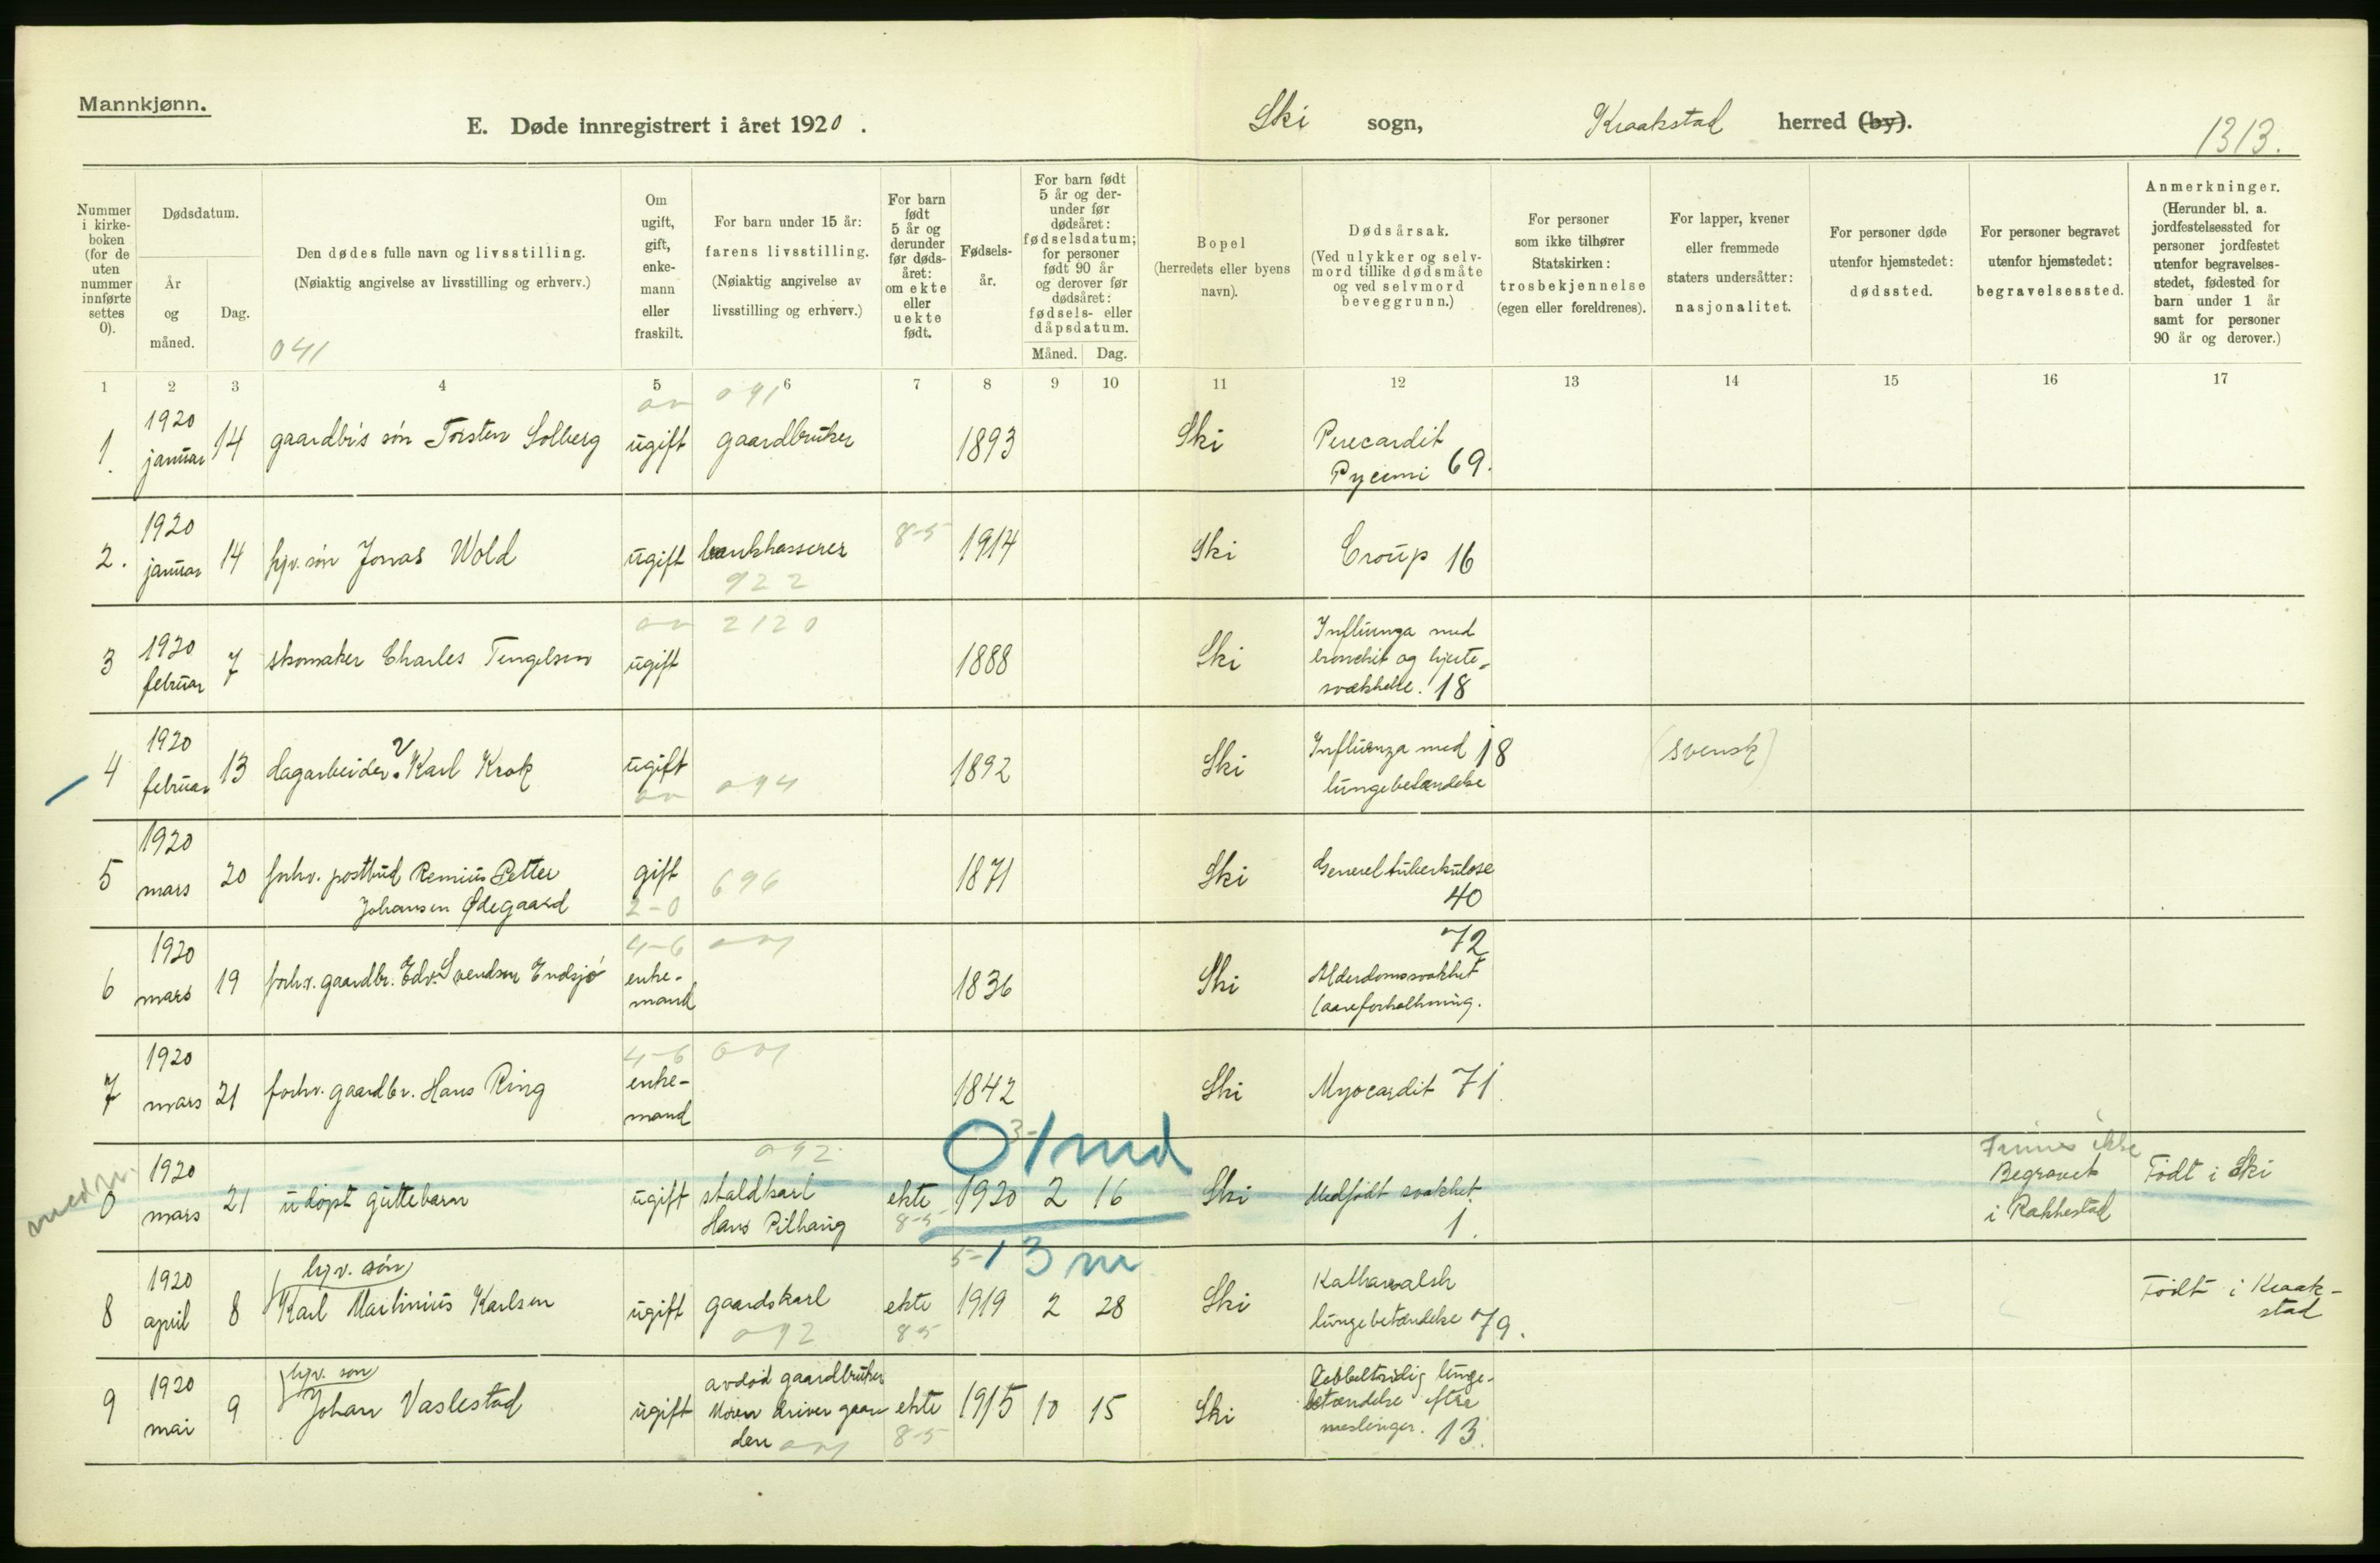 Mannkjønn.
E. Døde innregistrert i året 1920.
Ski sogn, Kraakstad herred (by).
1313.
Nummer i kirke-boken (for de uten nummer innførte settes 0).
Dødsdatum.
År og måned.
Dag.
Den dødes fulle navn og livsstilling.
(Nøiaktig angivelse av livsstilling og erhverv.)
041
Om ugift, gift, enke-mann eller fraskilt.
For barn under 15 år: farens livsstilling.
(Nøiaktig angivelse av livsstilling og erhverv.)
For barn født 5 år og derunder før døds-året: om ekte eller uekte født.
Fødsels-år.
For barn født 5 år og der-under før dødsåret: fødselsdatum; for personer født 90 år og derover før dødsåret: fødsels- eller dåpsdatum.
Måned. Dag.
Bopel (herredets eller byens navn).
Dødsårsak.
(Ved ulykker og selv-mord tillike dødsmåte og ved selvmord beveggrunn.)
For personer som ikke tilhører Statskirken: trosbekjennelse (egen eller foreldrenes).
For lapper, kvener eller fremmede staters undersåtter: nasjonalitet.
For personer døde utenfor hjemstedet: dødssted.
For personer begravet utenfor hjemstedet: begravelsessted.
Anmerkninger.
(Herunder bl. a. jordfestelsessted for personer jordfestet utenfor begravelses-stedet, fødested for barn under 1 år samt for personer 90 år og derover.)
1 2 3 4 5 6 7 8 9 10 11 12 13 14 15 16 17
091
1. 1920 januar 14 gaardbr's søn Torsten Solberg ugift gaardbruker 1893 Ski Perecardit
Pycemi 69.
2. 1920 januar 14 hjv. søn Jonas Wold ugift bankkasserer 8-5 1914 Ski Croup 16
922
2120
3 1920 februar 7 skomaker Charles Tengelsen ugift 1888 Ski Influenza med
bronchit og hjerte-
svækkelse. 18
4 1920 februar 13 dagarbeider Karl Krok ugift 094 1892 Ski Influenza med 18
lungebetændelse (svensk)
5 1920 mars 20 forhv. postbud Remius Petter
Johansen Ødegaard gift 2-0 696 1871 Ski Generel tuberkulose
40
6 1920 mars 19 forhv. gaardbr. Edv. Svendsen Endsjø 4-6 enke-
mand 1836 Ski 72
Alderdomssvakhet
(aareforkalkning.
7 1920 mars 21 forhv. gaardbr. Hans Ring 4-6 enke-
mand 1842 Ski Myocardit 71.
092
0 1md
0 1920 mars 21 udøpt guttebarn ugift staldkarl
Hans Pilhaug ekte 8-5 1920 2 16 Ski Medfødt svakhet
1. Finnes ikke
Begravet
i Rakkestad Født i Ski
5-1 3 m
8 1920 april 8 hjv. søn
Karl Martinius Karlsen ugift gaardskarl 092 ekte 85 1919 2 28 Ski Katharralsk
lungebetændelse 79. Født i Kraak-
stad
9 1920 mai 9 hjv. søn
Johan Vaslestad ugift avdød gaardbruker
Moren driver gaar-
den ekte 8-5 1915 10 15 Ski Dobbeltsidig lunge-
betændelse efter
meslinger. 13.